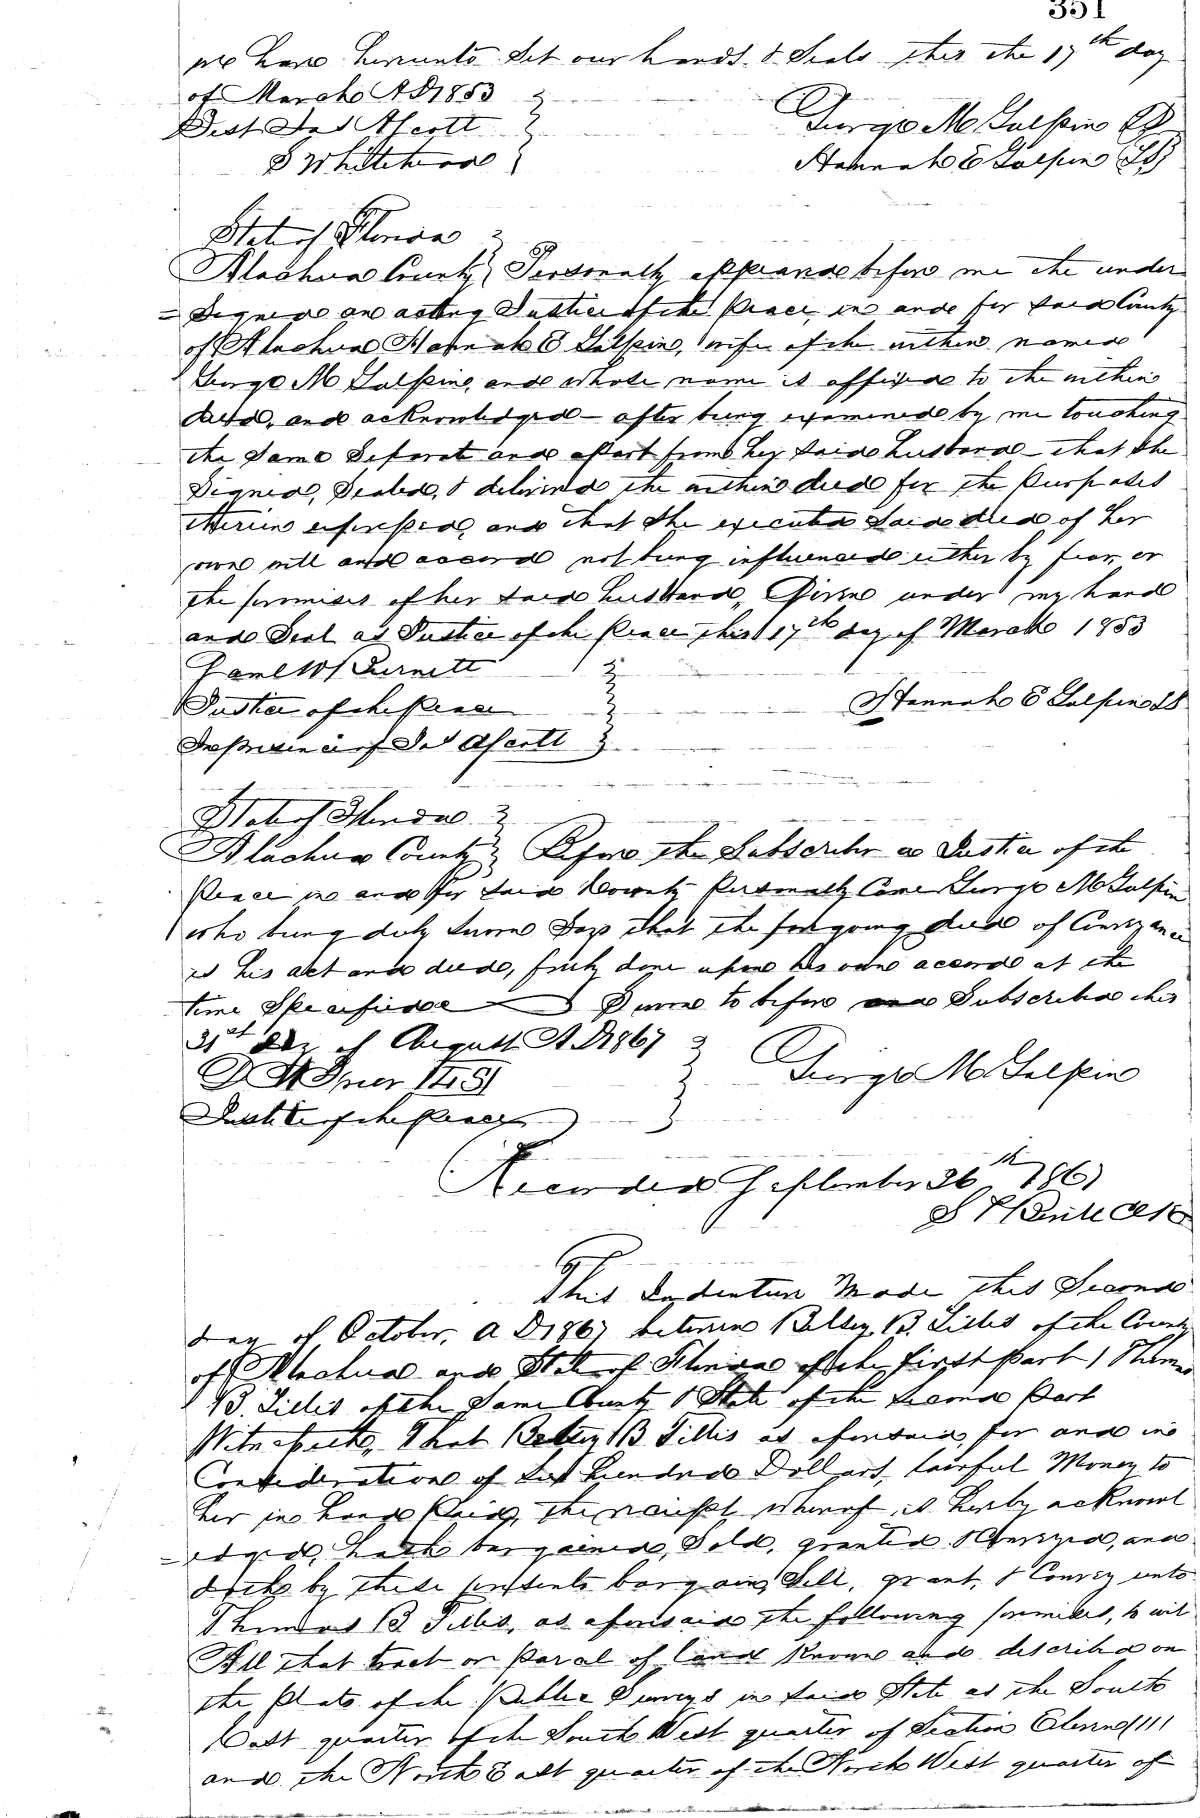 351
we have hereunto Set our hands & Seals this the 17th day
of March AD 1853
Test Jas A Scott George M Galpin LS
S Whitehead Hannah E Galpin LS
State of Florida
Alachua County Personally appeared before me the under
= Signed an acting Justice of the Peace, in and for said County
of Alachua Hannah E Galpin, wife of the within named
George M Galpin, and whose name is affixed to the within
deed, and acknowledged - after being examined by me touching
the same Seperate and apart from her said husband - that She
Signed, Sealed, & delivered the within deed for the Purposes
therein expressed, and that She executed said deed of her
own will and accord not being influenced either by fear, or
the promises of her said husband, Given under my hand
and Seal as Justice of the Peace this 17th day of March 1853
Saml W Burnett
Justice of the Peace Hannah E Galpin LS
In presence of Jas A Scott
State of Florida
Alachua County Before the Subscriber a Justice of the
Peace in and for said County Personally Came George M Galpin
who being duly sworn Says that the foregoing deed of Conveyance
is his act and deed, freely done upon his own accord at the
time Specified Sworn to before and Subscribed this
31st day of August AD 1867
George M Galpin
Justice of the Peace
Recorded September 26th 1867
This Indenture Made this Second
day of October, AD 1867 between Betsey B Tillis of the County
of Alachua and State of Florida of the first part & Thomas
B. Tillis of the Same County & State of the second Part
Witnesseth, That Betsey B Tillis as aforesaid, for and in
Consideration of Six hundred Dollars, lawful Money to
her in hand Paid, the reciept whereof is herby acknowl
= edged, hath bargained, Sold, granted & Conveyed, and
doth by these presents bargain, Sell, grant, & Convey unto
Thomas B Tillis, as aforesaid the following premises, to wit
All that tract or parcel of land Known and described on
the Plats of the Public Surveys in said State as the South
East quarter of the South West quarter of Section Eleven (11)
and the North East quarter of the North West quarter of